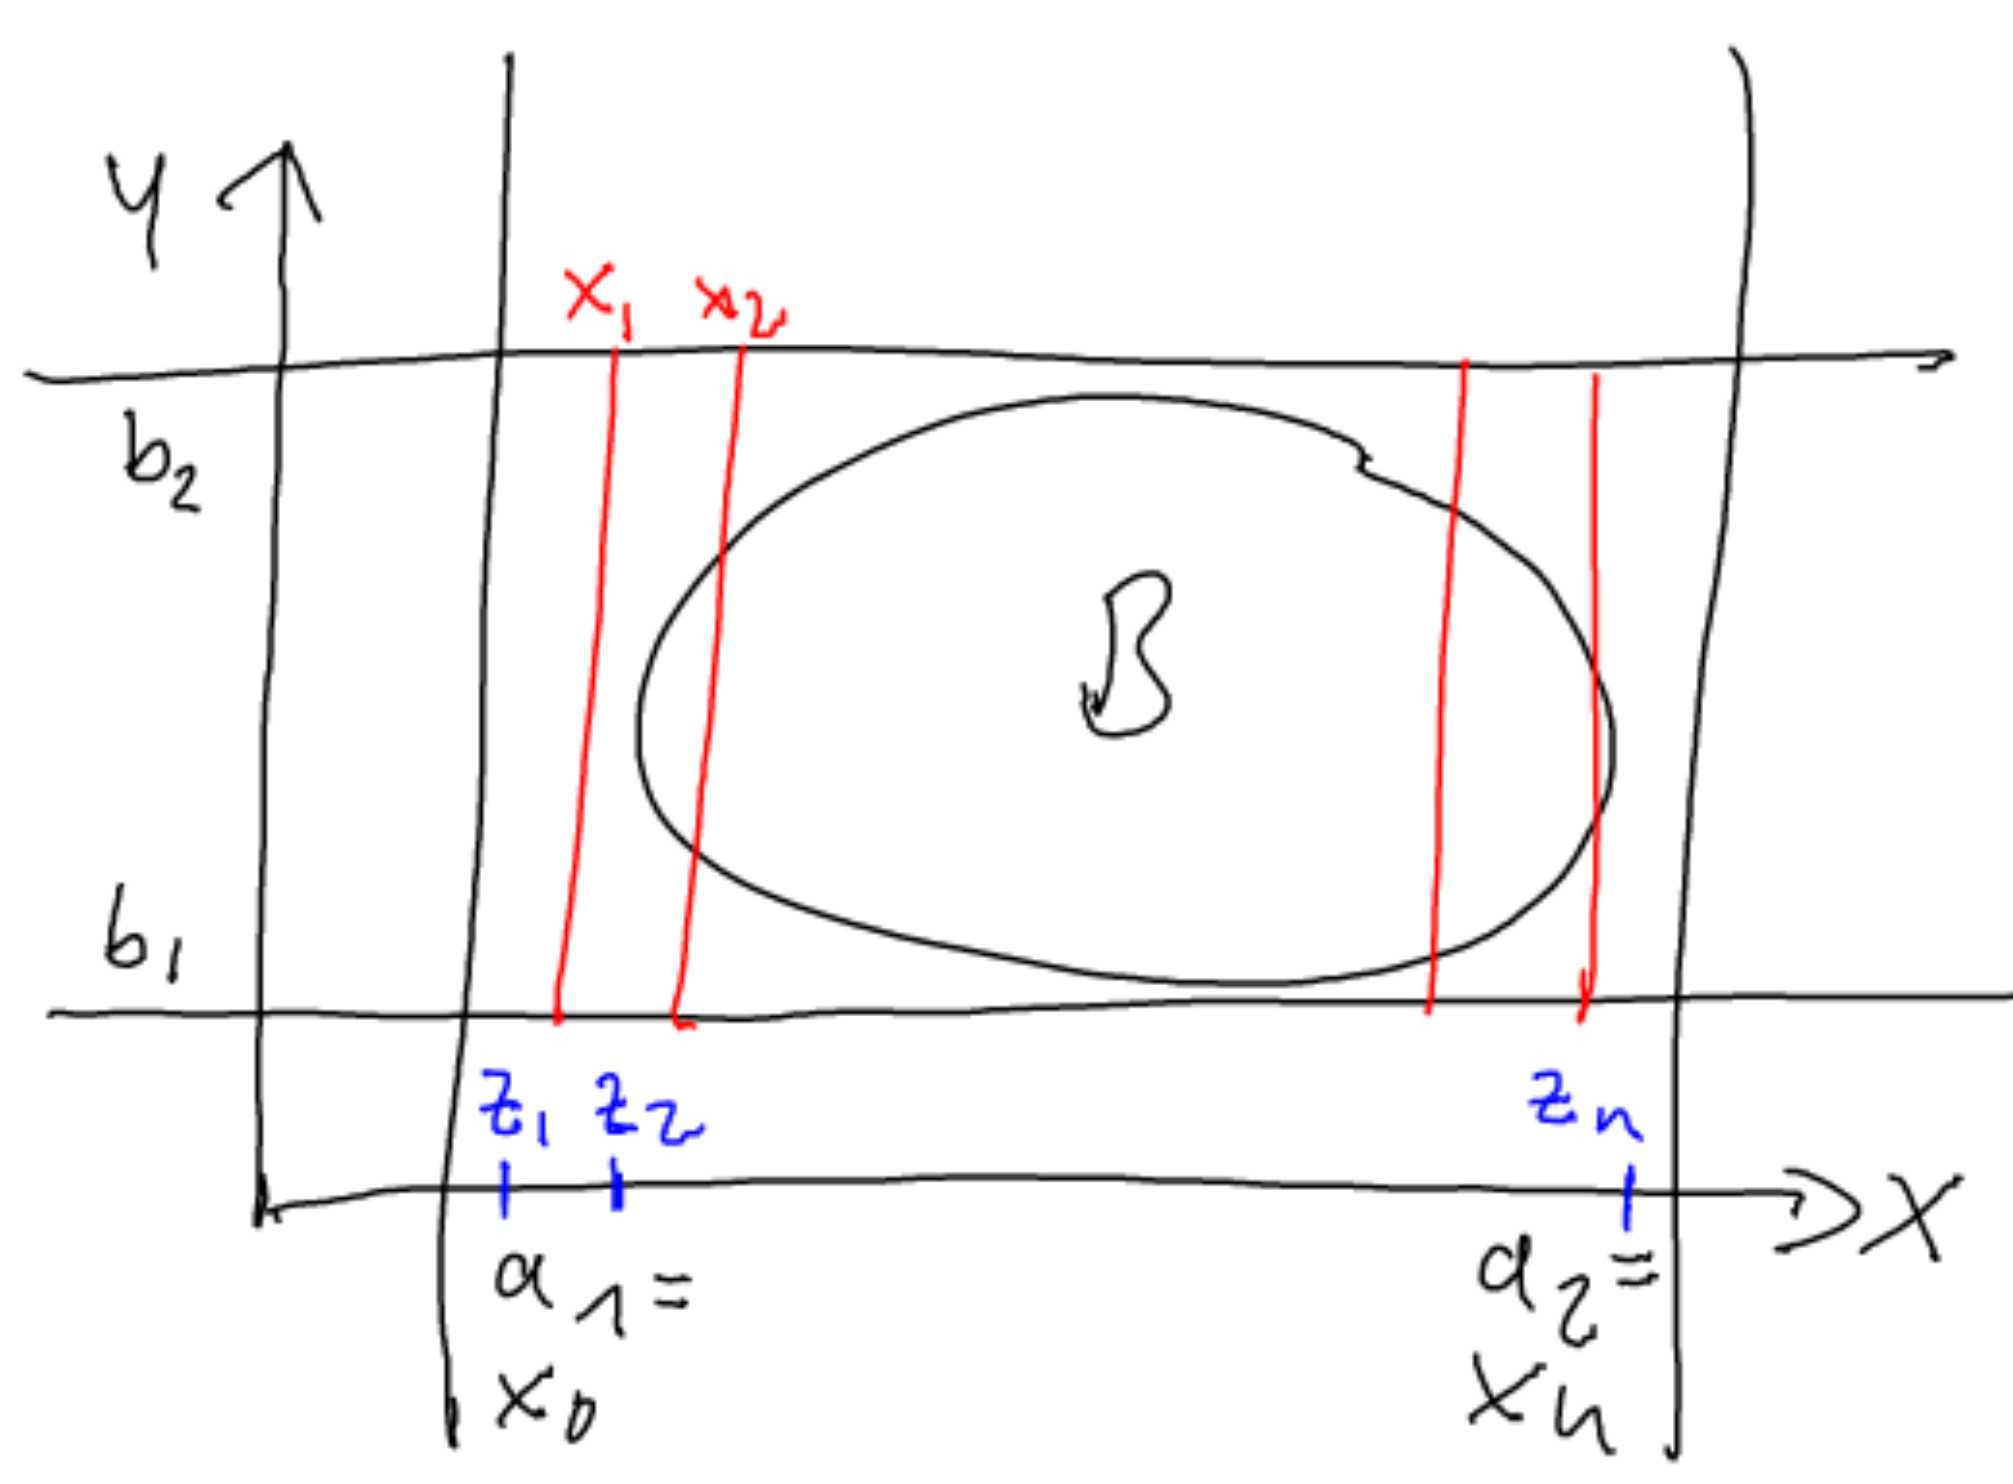 y
x₁ x₂
b₂
B
b₁
z₁ z₂ zₙ
x
a₁= a₂=
x₀ xₙ